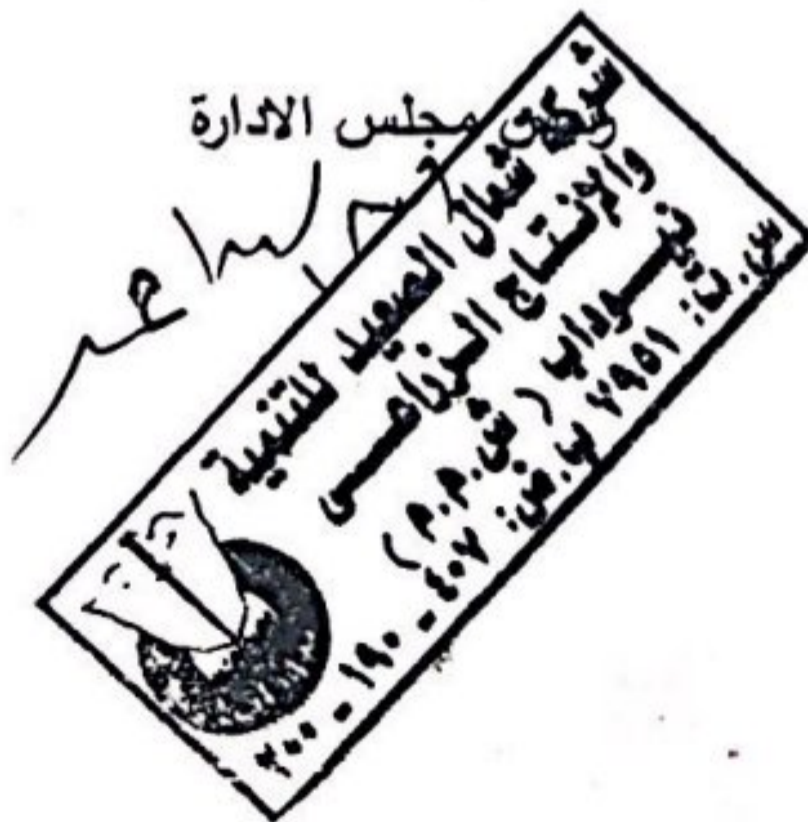 رئيس مجلس الادارة
شركة شمال الصعيد للتنمية
والإنتاج الزراعى
نيوداب (ش.م.م)
س.ت: ٧٩٥١ ب.ض: ٤٠٧ - ١٩٠ - ٢٠٠